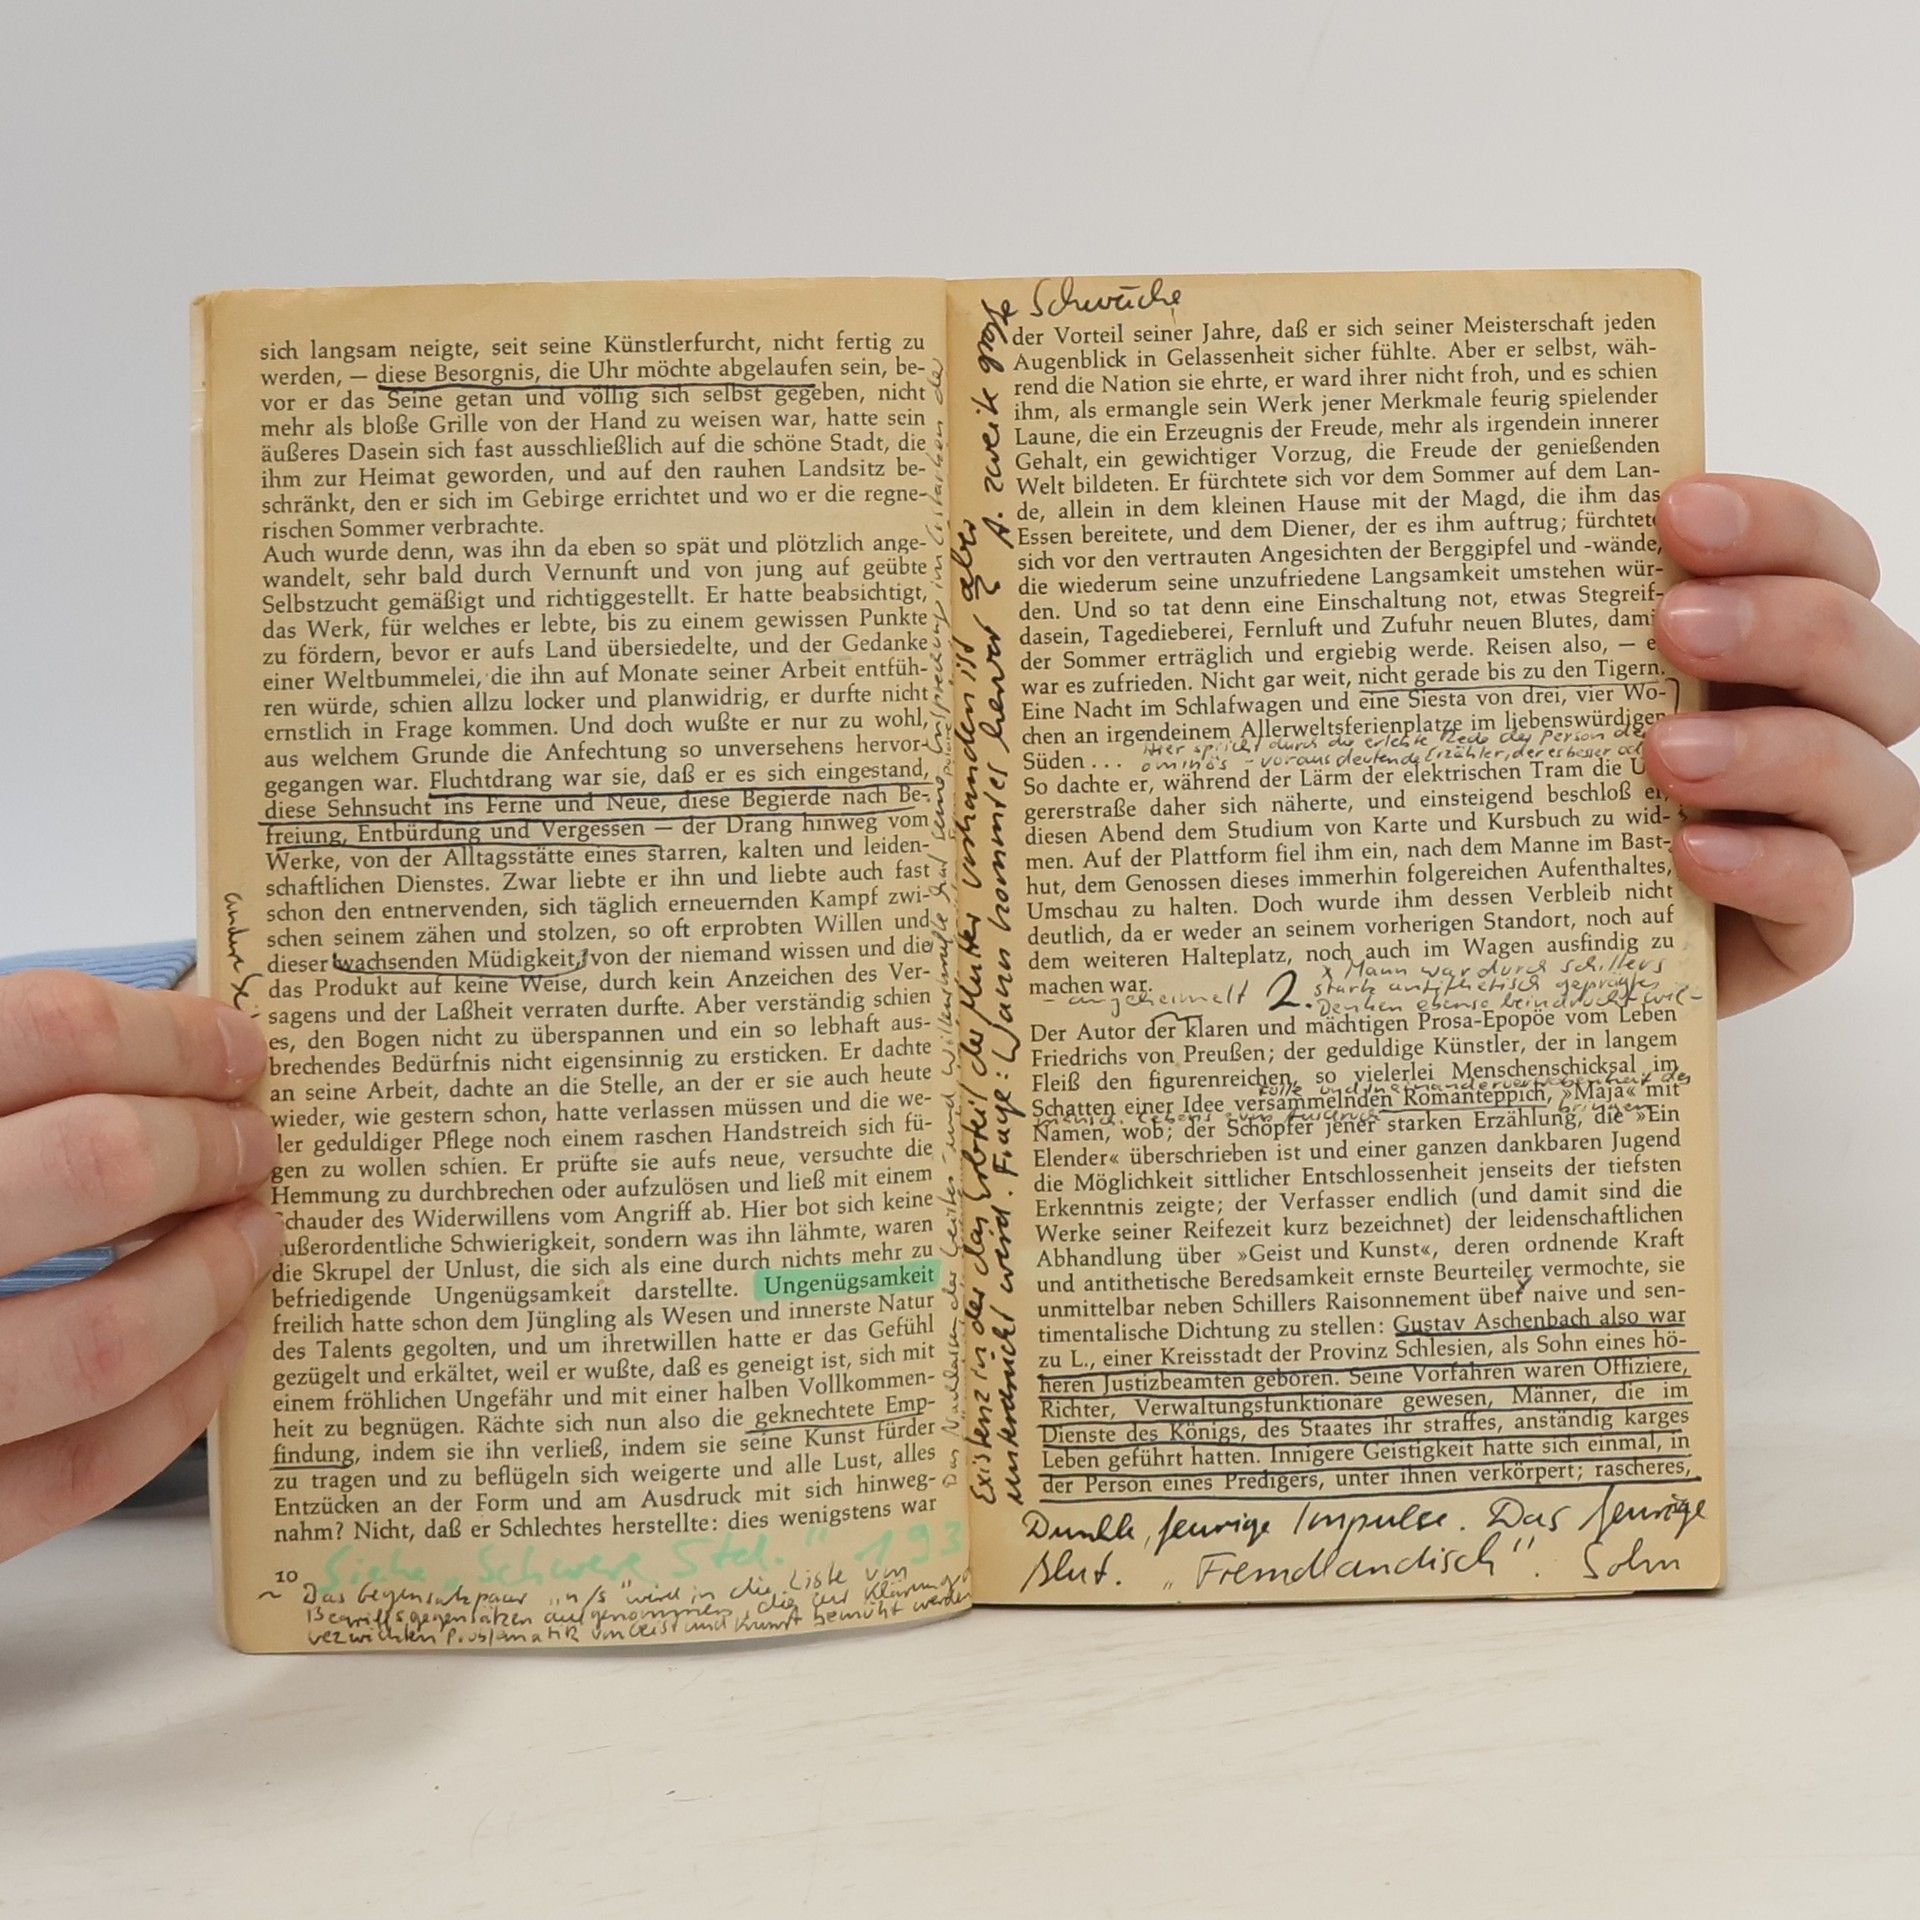 sich langsam neigte, seit seine Künstlerfurcht, nicht fertig zu
werden, — diese Besorgnis, die Uhr möchte abgelaufen sein, be-
vor er das Seine getan und völlig sich selbst gegeben, nicht
mehr als bloße Grille von der Hand zu weisen war, hatte sein
äußeres Dasein sich fast ausschließlich auf die schöne Stadt, die
ihm zur Heimat geworden, und auf den rauhen Landsitz be-
schränkt, den er sich im Gebirge errichtet und wo er die regne-
rischen Sommer verbrachte.
Auch wurde denn, was ihn da eben so spät und plötzlich ange-
wandelt, sehr bald durch Vernunft und von jung auf geübte
Selbstzucht gemäßigt und richtiggestellt. Er hatte beabsichtigt,
das Werk, für welches er lebte, bis zu einem gewissen Punkte
zu fördern, bevor er aufs Land übersiedelte, und der Gedanke
einer Weltbummelei, die ihn auf Monate seiner Arbeit entfüh-
ren würde, schien allzu locker und planwidrig, er durfte nicht
ernstlich in Frage kommen. Und doch wußte er nur zu wohl,
aus welchem Grunde die Anfechtung so unversehens hervor-
gegangen war. Fluchtdrang war sie, daß er es sich eingestand,
diese Sehnsucht ins Ferne und Neue, diese Begierde nach Be-
freiung, Entbürdung und Vergessen — der Drang hinweg vom
Werke, von der Alltagsstätte eines starren, kalten und leiden-
schaftlichen Dienstes. Zwar liebte er ihn und liebte auch fast
schon den entnervenden, sich täglich erneuernden Kampf zwi-
schen seinem zähen und stolzen, so oft erprobten Willen und
dieser wachsenden Müdigkeit, von der niemand wissen und die
das Produkt auf keine Weise, durch kein Anzeichen des Ver-
sagens und der Laßheit verraten durfte. Aber verständig schien
es, den Bogen nicht zu überspannen und ein so lebhaft aus-
brechendes Bedürfnis nicht eigensinnig zu ersticken. Er dachte
an seine Arbeit, dachte an die Stelle, an der er sie auch heute
wieder, wie gestern schon, hatte verlassen müssen und die we-
ler geduldiger Pflege noch einem raschen Handstreich sich fü-
gen zu wollen schien. Er prüfte sie aufs neue, versuchte die
Hemmung zu durchbrechen oder aufzulösen und ließ mit einem
Schauder des Widerwillens vom Angriff ab. Hier bot sich keine
außerordentliche Schwierigkeit, sondern was ihn lähmte, waren
die Skrupel der Unlust, die sich als eine durch nichts mehr zu
befriedigende Ungenügsamkeit darstellte. Ungenügsamkeit
freilich hatte schon dem Jüngling als Wesen und innerste Natur
des Talents gegolten, und um ihretwillen hatte er das Gefühl
gezügelt und erkältet, weil er wußte, daß es geneigt ist, sich mit
einem fröhlichen Ungefähr und mit einer halben Vollkommen-
heit zu begnügen. Rächte sich nun also die geknechtete Emp-
findung, indem sie ihn verließ, indem sie seine Kunst fürder
zu tragen und zu beflügeln sich weigerte und alle Lust, alles
Entzücken an der Form und am Ausdruck mit sich hinweg-
nahm? Nicht, daß er Schlechtes herstellte: dies wenigstens war
Siehe „Schwere Std." 193
10
~ Das Gegensatzpaar „n/s" wird in die Liste von
Begriffsgegensätzen aufgenommen, die zur Klärung
Problematik von Geist und Kunst bemüht werden
Existenz in der das Erbteil der Mutter vorhanden ist, aber
unterdrückt wird. Frage: Wann kommt es hervor?
A. zweite große Schwäche
der Vorteil seiner Jahre, daß er sich seiner Meisterschaft jeden
Augenblick in Gelassenheit sicher fühlte. Aber er selbst, wäh-
rend die Nation sie ehrte, er ward ihrer nicht froh, und es schien
ihm, als ermangle sein Werk jener Merkmale feurig spielender
Laune, die ein Erzeugnis der Freude, mehr als irgendein innerer
Gehalt, ein gewichtiger Vorzug, die Freude der genießenden
Welt bildeten. Er fürchtete sich vor dem Sommer auf dem Lan-
de, allein in dem kleinen Hause mit der Magd, die ihm das
Essen bereitete, und dem Diener, der es ihm auftrug; fürchtete
sich vor den vertrauten Angesichten der Berggipfel und -wände,
die wiederum seine unzufriedene Langsamkeit umstehen wür-
den. Und so tat denn eine Einschaltung not, etwas Stegreif-
dasein, Tagedieberei, Fernluft und Zufuhr neuen Blutes, dami
der Sommer erträglich und ergiebig werde. Reisen also, — e
war es zufrieden. Nicht gar weit, nicht gerade bis zu den Tigern.
Eine Nacht im Schlafwagen und eine Siesta von drei, vier Wo-
chen an irgendeinem Allerweltsferienplatze im liebenswürdigen
Hier spricht durch die erlebte Rede der Person der
Süden . . . ominös - vorausdeutende Erzähler, der es besser
So dachte er, während der Lärm der elektrischen Tram die U
gererstraße daher sich näherte, und einsteigend beschloß er,
diesen Abend dem Studium von Karte und Kursbuch zu wid-
men. Auf der Plattform fiel ihm ein, nach dem Manne im Bast-
hut, dem Genossen dieses immerhin folgereichen Aufenthaltes,
Umschau zu halten. Doch wurde ihm dessen Verbleib nicht
deutlich, da er weder an seinem vorherigen Standort, noch auf
dem weiteren Halteplatz, noch auch im Wagen ausfindig zu
machen war. x Mann war durch Schillers
- angeheimelt 2. stark antithetisch geprägtes
Denken ebenso beeindruckt wie -
Der Autor der klaren und mächtigen Prosa-Epopöe vom Leben
Friedrichs von Preußen; der geduldige Künstler, der in langem
Fleiß den figurenreichen, so vielerlei Menschenschicksal im
Fülle und Ineinanderverwobenheit des
Schatten einer Idee versammelnden Romanteppich, »Maja« mit
mensch. Lebens zum Ausdruck bringen
Namen, wob; der Schöpfer jener starken Erzählung, die »Ein
Elender« überschrieben ist und einer ganzen dankbaren Jugend
die Möglichkeit sittlicher Entschlossenheit jenseits der tiefsten
Erkenntnis zeigte; der Verfasser endlich (und damit sind die
Werke seiner Reifezeit kurz bezeichnet) der leidenschaftlichen
Abhandlung über »Geist und Kunst«, deren ordnende Kraft
und antithetische Beredsamkeit ernste Beurteiler vermochte, sie
unmittelbar neben Schillers Raisonnement über naive und sen-
timentalische Dichtung zu stellen: Gustav Aschenbach also war
zu L., einer Kreisstadt der Provinz Schlesien, als Sohn eines hö-
heren Justizbeamten geboren. Seine Vorfahren waren Offiziere,
Richter, Verwaltungsfunktionäre gewesen, Männer, die im
Dienste des Königs, des Staates ihr straffes, anständig karges
Leben geführt hatten. Innigere Geistigkeit hatte sich einmal, in
der Person eines Predigers, unter ihnen verkörpert; rascheres,
Dunkle, feurige Impulse. Das feurige
Blut. „Fremdländisch". Sohn